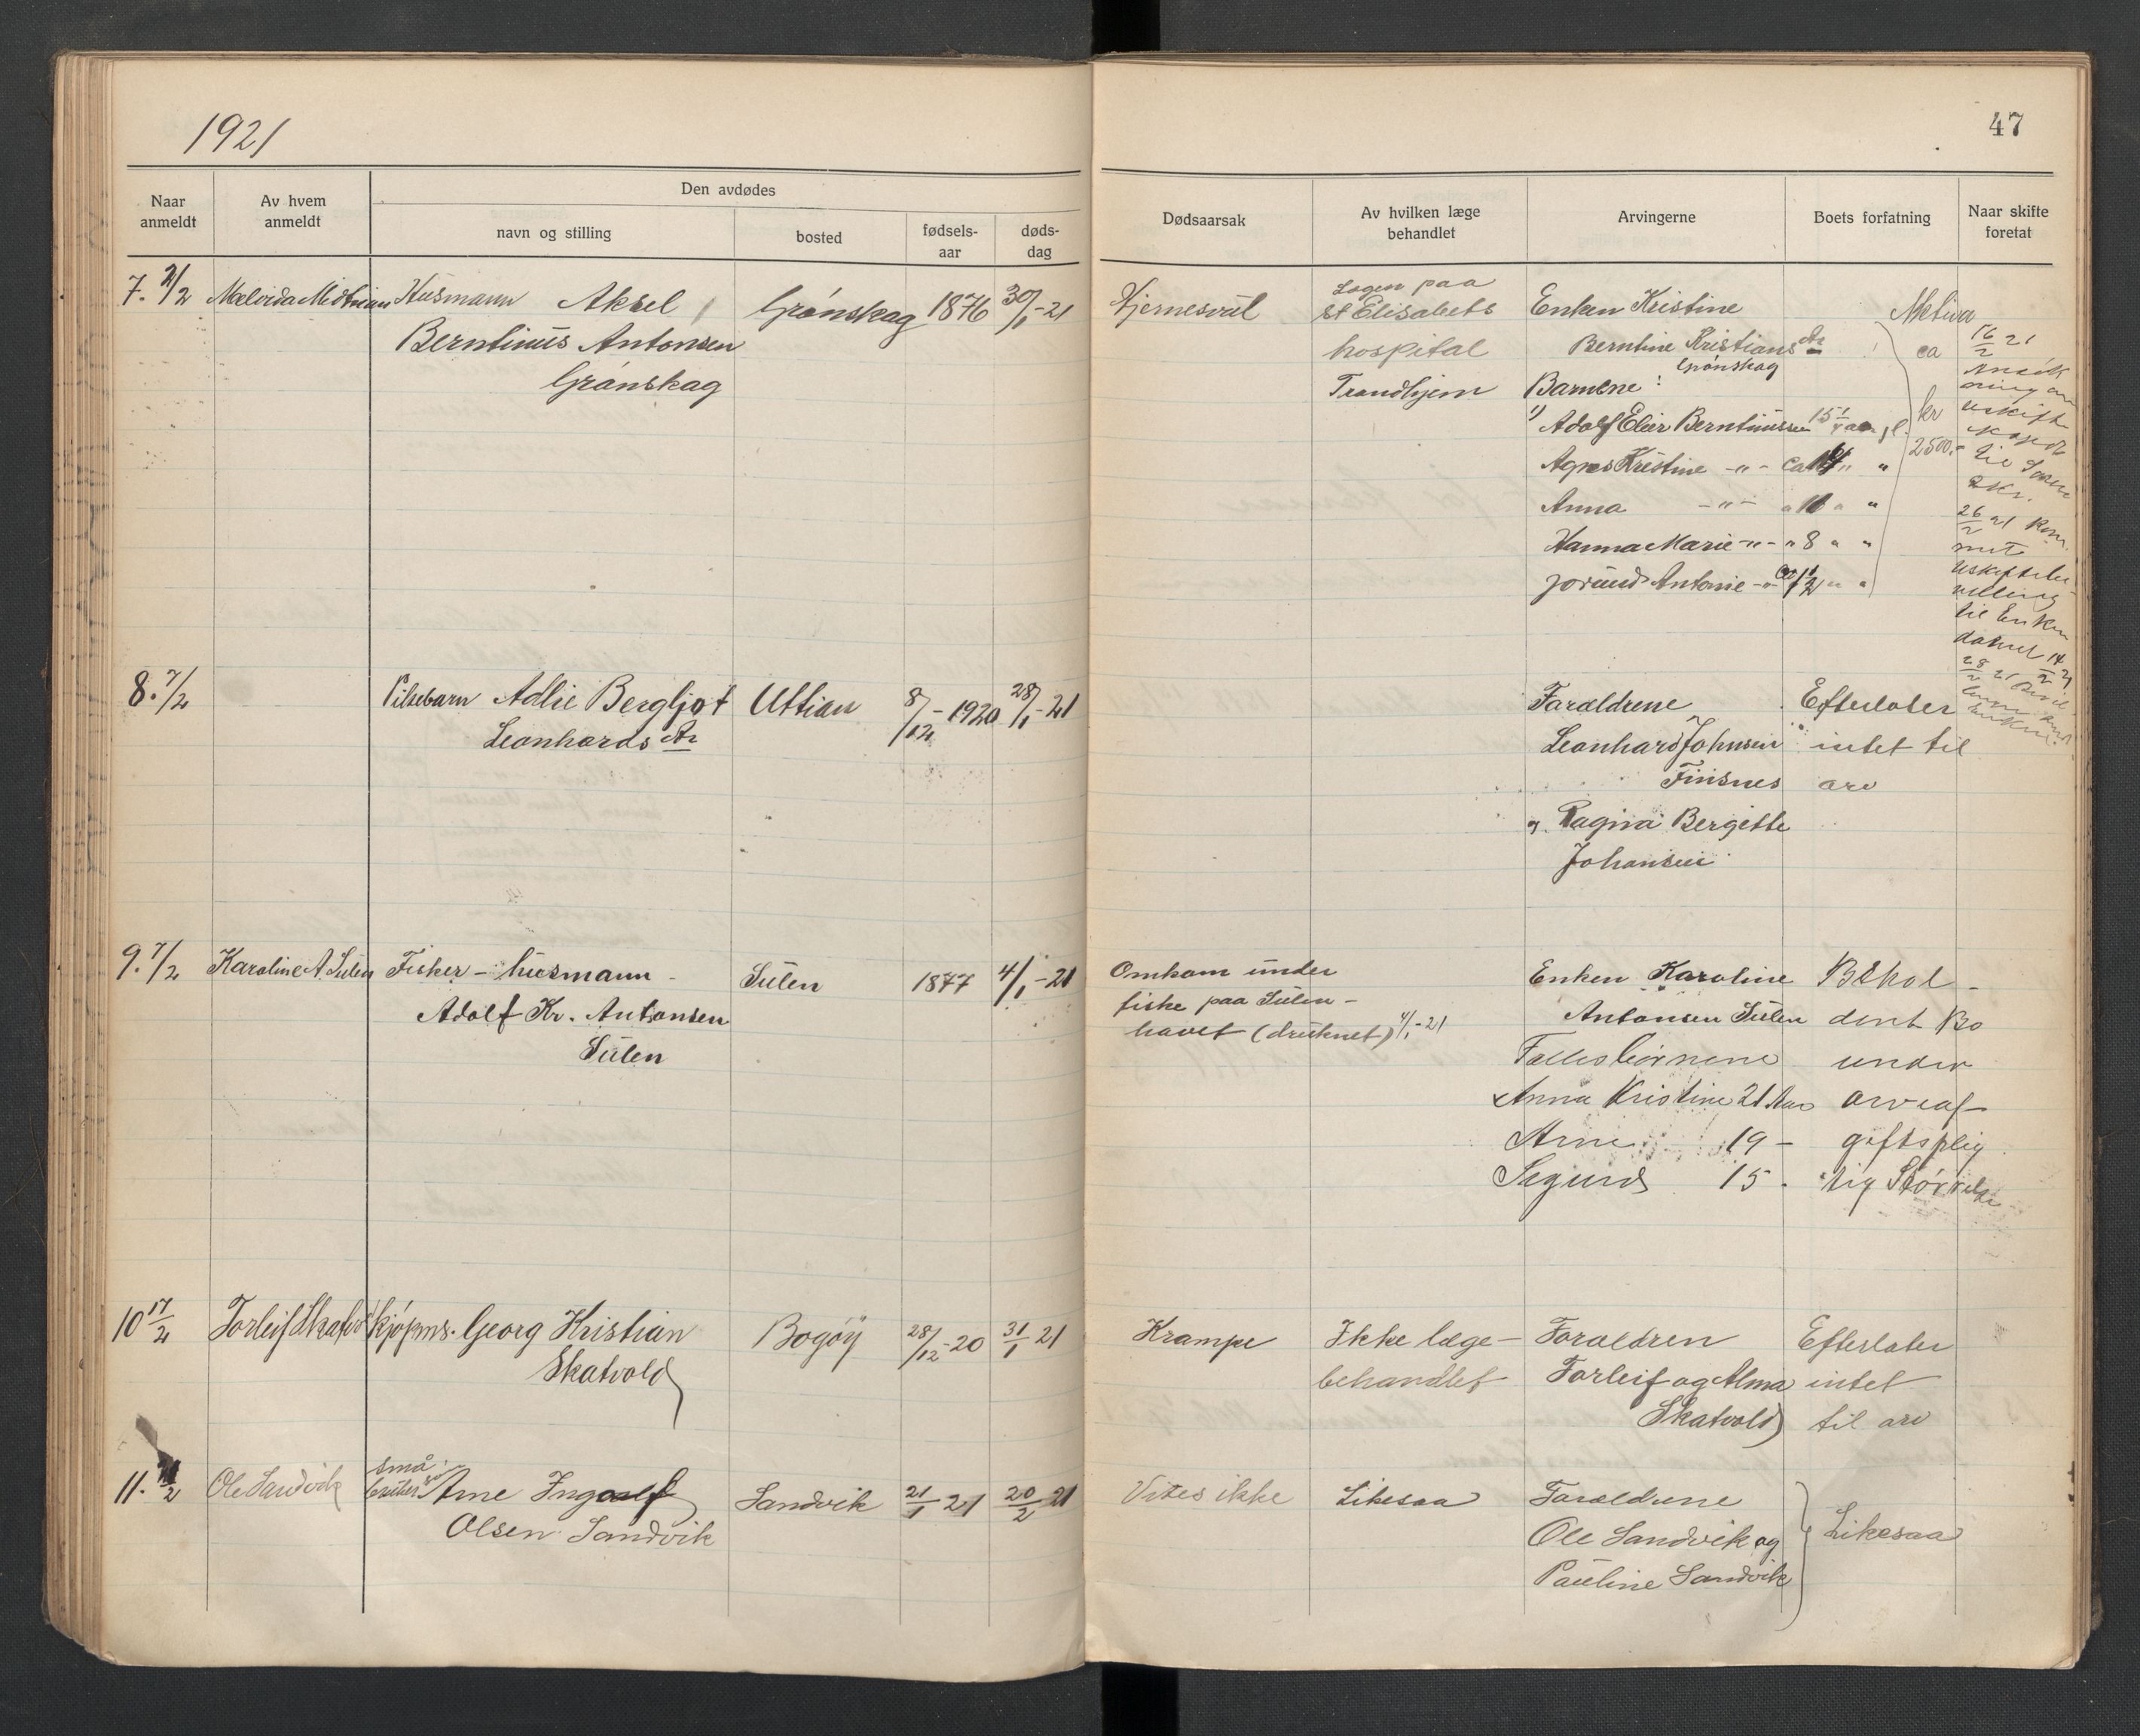 1921
47
Naar anmeldt
Av hvem anmeldt
Den avdødes
navn og stilling
bosted
fødsels-aar
døds-dag
Dødsaarsak
Av hvilken læge behandlet
Arvingerne
Boets forfatning
Naar skifte foretat
7. 2/2
Husmann Aksel
Berntinus Antonsen
Grønskag
Grønskag
1876
30/1-21
Hjernesvul
Lægen paa
St Elisabets
hospital
Trondhjem
Enken Kristine
Berntine Kristians dtr
Grønskag
Barnene:
1) Adolf Elier Berntinussen 15 1/2 aar gl.
Agnes Kristine -"- ca 14 " "
Anna -"- " 10 " "
Hanna Marie -"- " 8 " "
Jorund Antonie -"- ca 1 1/2 " "
ca
kr
2500.-
16/2 21
uskifte
til Soren
skr.
26/2 21 Kom.
til Enken
8. 7/2
Pikebarn Adlie Bergljot
Leonhards dtr
Uttian
8/12-1920
28/1-21
Foraldrene
Leonhard Johnsen
Finsnes
o. Ragna Bergitte
Johansen
Efterlater
intet til
arv
9. 7/2
Karoline A. Sulen
Fisker - husmann -
Adolf Kr. Antonsen
Sulen
Sulen
1877
4/1-21
Omkom under
fiske paa Sulen-
havet (druknet) 4/1-21
Enken Karoline
Antonsen Sulen
Fællesbørnene
Anna Kristine 21 Aar
Arne 19 -
Sigurd 15 -
Behol-
dent Bo
under
arveaf-
giftsplig
tig Størrelse
10 17/2
Torleif Skatvold
Kjøpms. Georg Kristian
Skatvold
Bogøy
28/12-20
31/1 21
Krampe
Ikke læge-
behandlet
Foraldren
Torleif og Alma
Skatvold
Efterlater
intet
til arv
11. 21/2
Ole Sandvik
små
bruker
Arne Ingolf
Olsen Sandvik
Sandvik
21/1 21
20/2 21
Vites ikke
Likesaa
Foraldrene
Ole Sandvik og
Pauline Sandvik
Likesaa